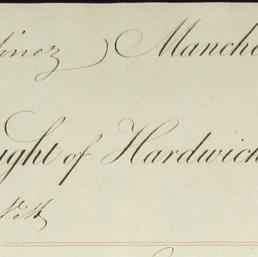 inez) Manche
ught of Hardwich